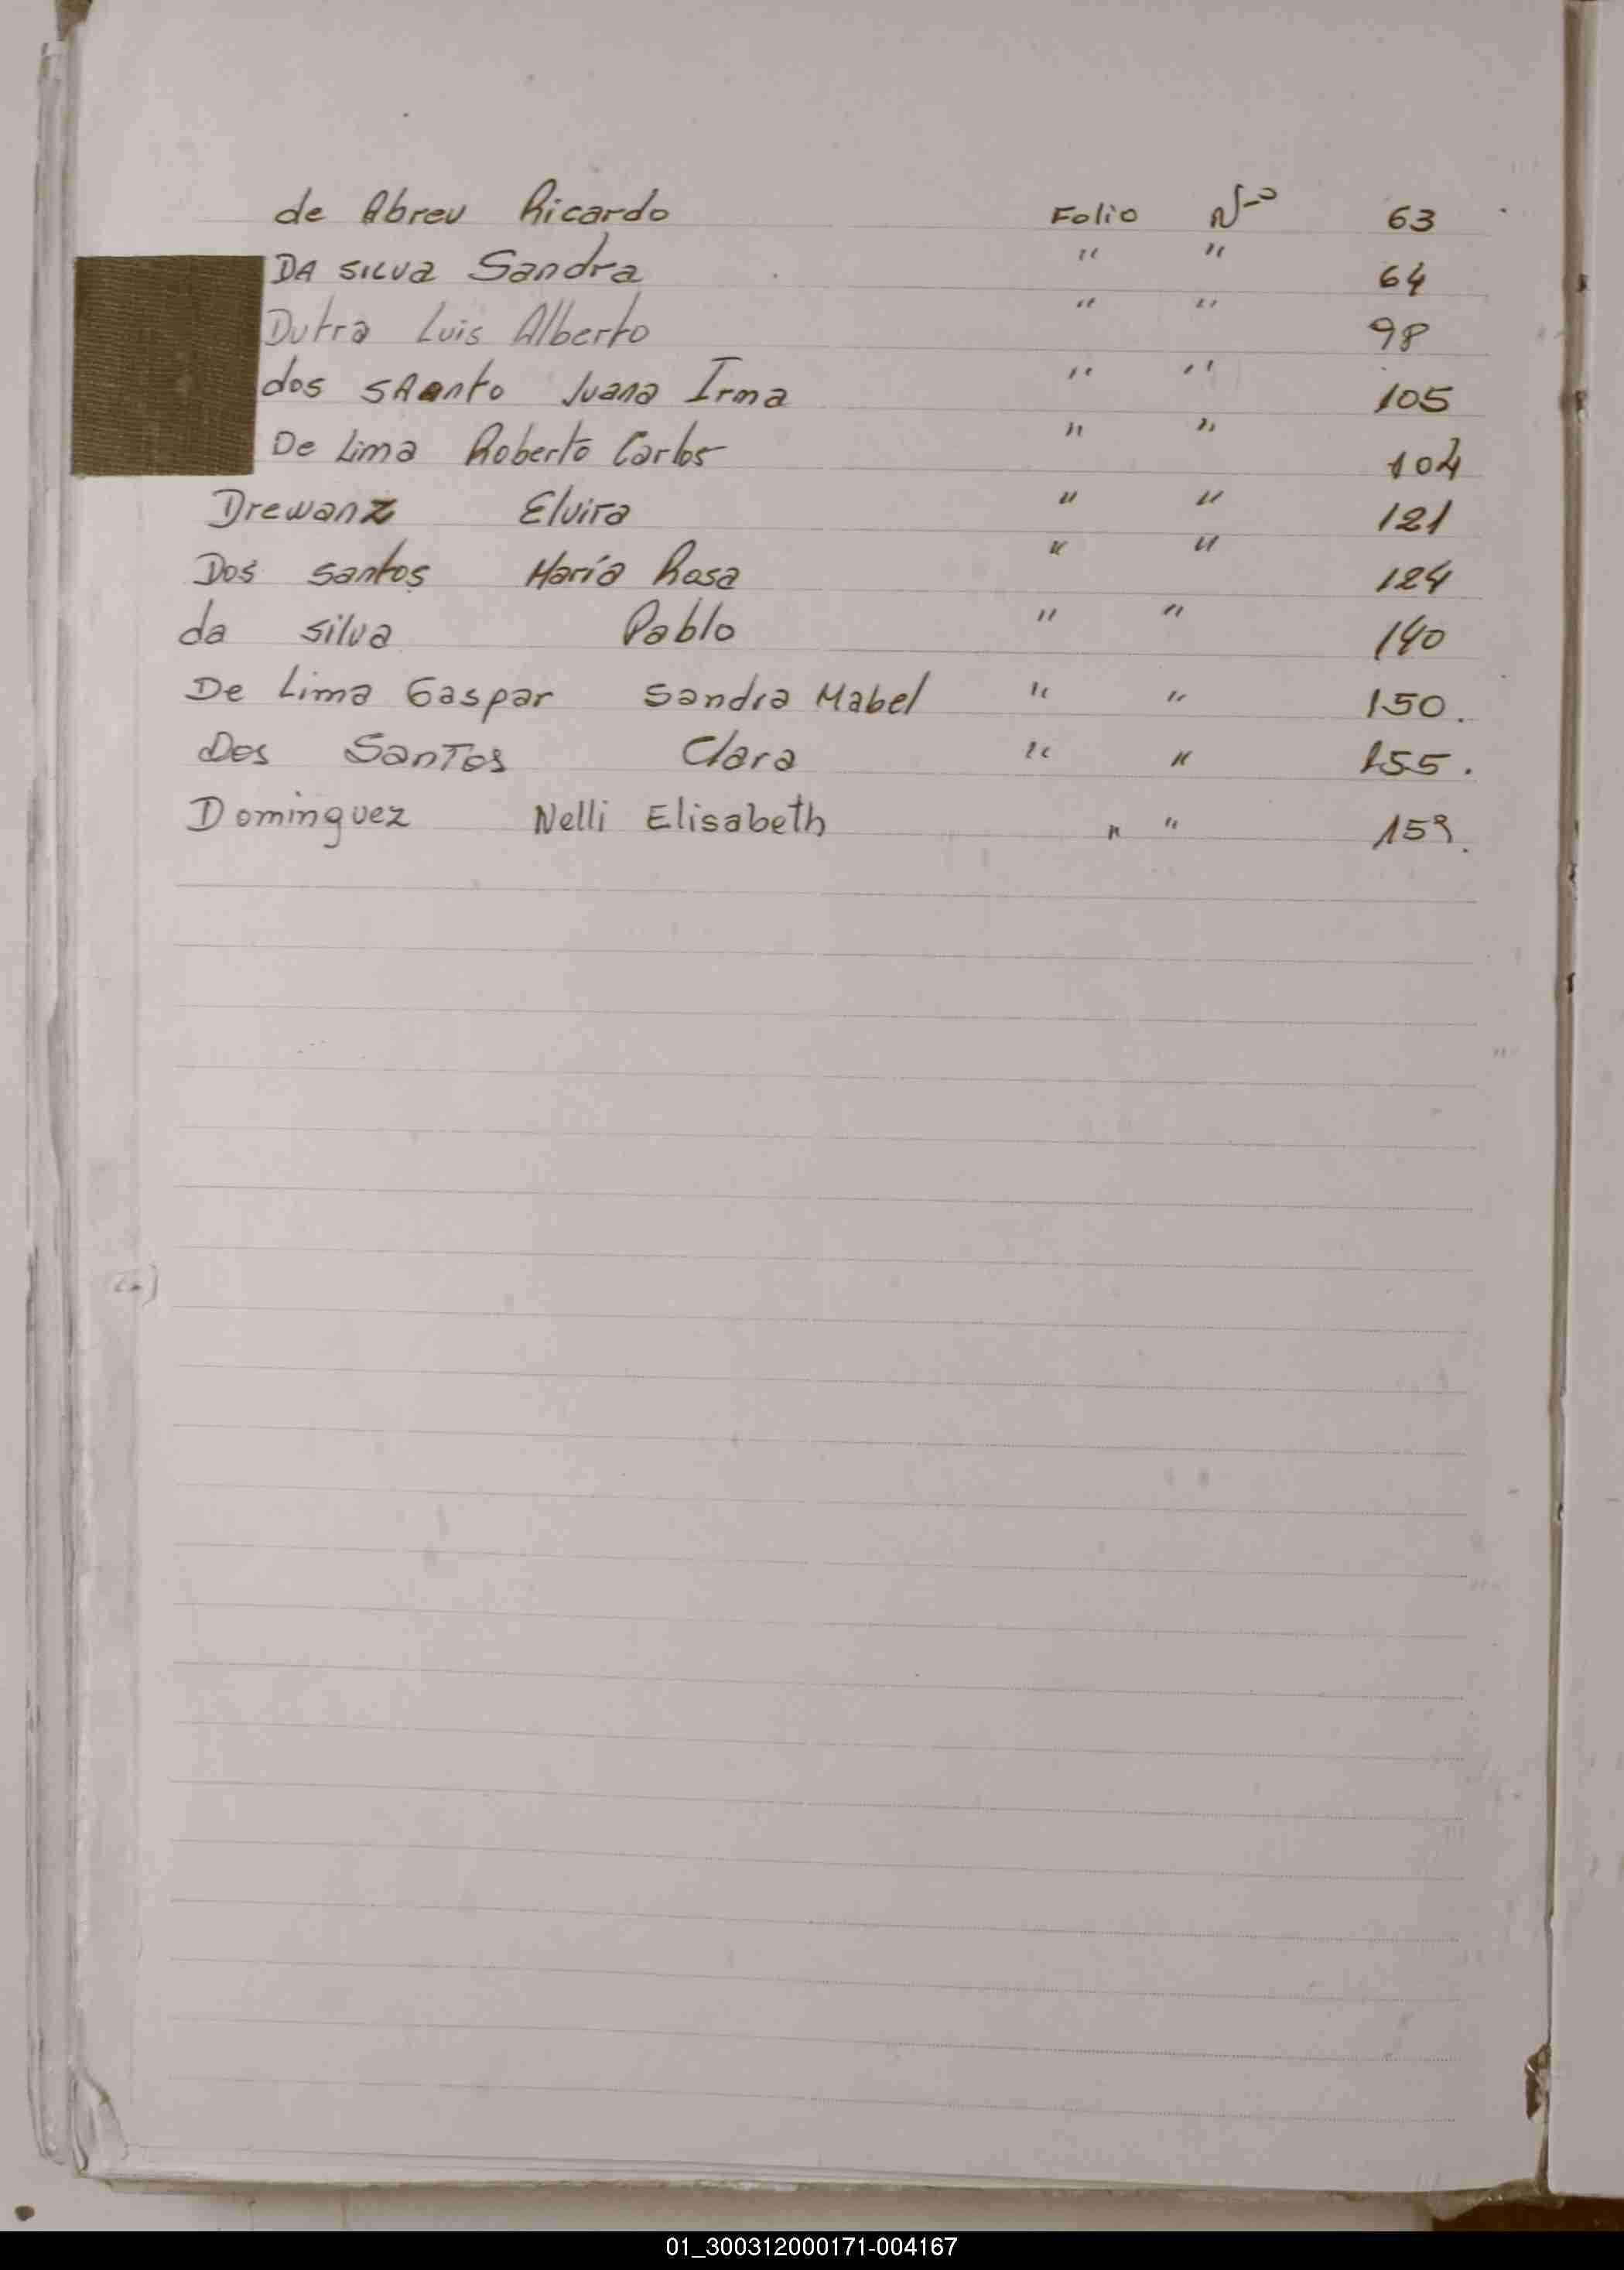 de Abreu Ricardo Folio Nº 63
DA SILVA Sandra " " 64
Dutra Luis Alberto " " 98
dos SAanto Juana Irma " " 105
De Lima Roberto Carlos " " 104
Drewanz Elvira " " 121
Dos santos María Rosa " " 124
da silva Pablo " " 140
De Lima Gaspar Sandra Mabel " " 150.
Dos SanTos Clara " " 155.
Dominguez Nelli Elisabeth " " 159.
01_300312000171-004167